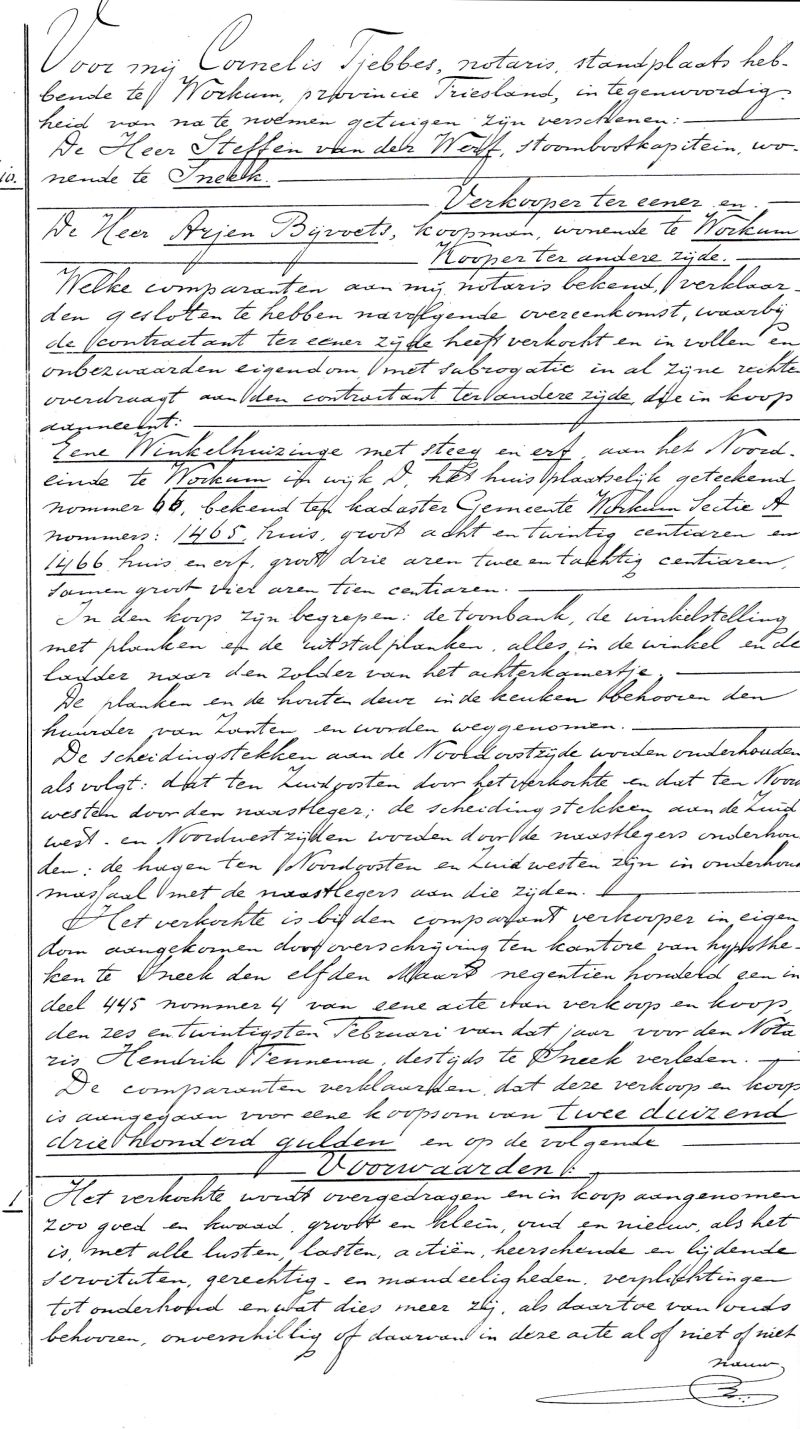 Voor mij Cornelis Tjebbes, notaris, standplaats heb-
bende te Workum, provincie Friesland, in tegenwoordig-
heid van na te noemen getuigen zijn verschenen:
De Heer Steffen van der Werf, stoombootkapitein, wo-
nende te Sneek.
Verkooper ter eener en
De Heer Arjen Bijvoets, koopman, wonende te Workum
Kooper ter andere zijde.
Welke comparanten aan mij notaris bekend, verklaar-
den gesloten te hebben navolgende overeenkomst, waarbij
de contractant ter eener zijde heeft verkocht en in vollen en
onbezwaarden eigendom, met subrogatie in al zijne rechten
overdraagt aan den contractant ter andere zijde, die in koop
aanneemt:
Eene Winkelhuizinge met steeg en erf, aan het Noord-
einde te Workum in wijk D. het huis plaatselijk geteekend
nommer 66, bekend ten kadaster Gemeente Workum Sectie A
nommers: 1465, huis, groot acht en twintig centiaren en
1466 huis en erf, groot drie aren twee en tachtig centiaren,
samen groot vier aren tien centiaren.
In den koop zijn begrepen: de toonbank, de winkelstelling
met planken en de uitstalplanken, alles in de winkel en de
ladder naar den zolder van het achterkamertje.
De planken en de houten deur in de keuken behooren den
huurder van Zanten en worden weggenomen.
De scheidingstekken aan de Noordoostzijde worden onderhouden
als volgt: dat ten Zuidoosten door het verkochte en dat ten Noord
westen door den naastleger; de scheidingstekken aan de Zuid
west- en Noordwestzijden worden door de naastlegers onderhou-
den; de hagen ten Noordoosten en Zuidwesten zijn in onderhoud
massaal met de naastlegers aan die zijden.
Het verkochte is bij den comparant verkooper in eigen
dom aangekomen door overschrijving ten kantore van hypothe-
ken te Sneek den elfden Maart negentien honderd een in
deel 445 nommer 4 van eene acte van verkoop en koop,
den zes en twintigsten Februari van dat jaar voor den Nota
ris Hendrik Fennema, destijds te Sneek verleden.
De comparanten verklaarden, dat deze verkoop en koop
is aangegaan voor eene koopsom van twee duizend
drie honderd gulden en op de volgende
Voorwaarden:
1 Het verkochte wordt overgedragen en in koop aangenomen
zoo goed en kwaad, groot en klein, oud en nieuw, als het
is, met alle lusten, lasten, actiën, heerschende en lijdende
servituten, gerechtig- en mandeeligheden, verplichtingen
tot onderhoud en wat dies meer zij, als daartoe van ouds
behooren, onverschillig of daarvan in deze acte al of niet of niet
nauw